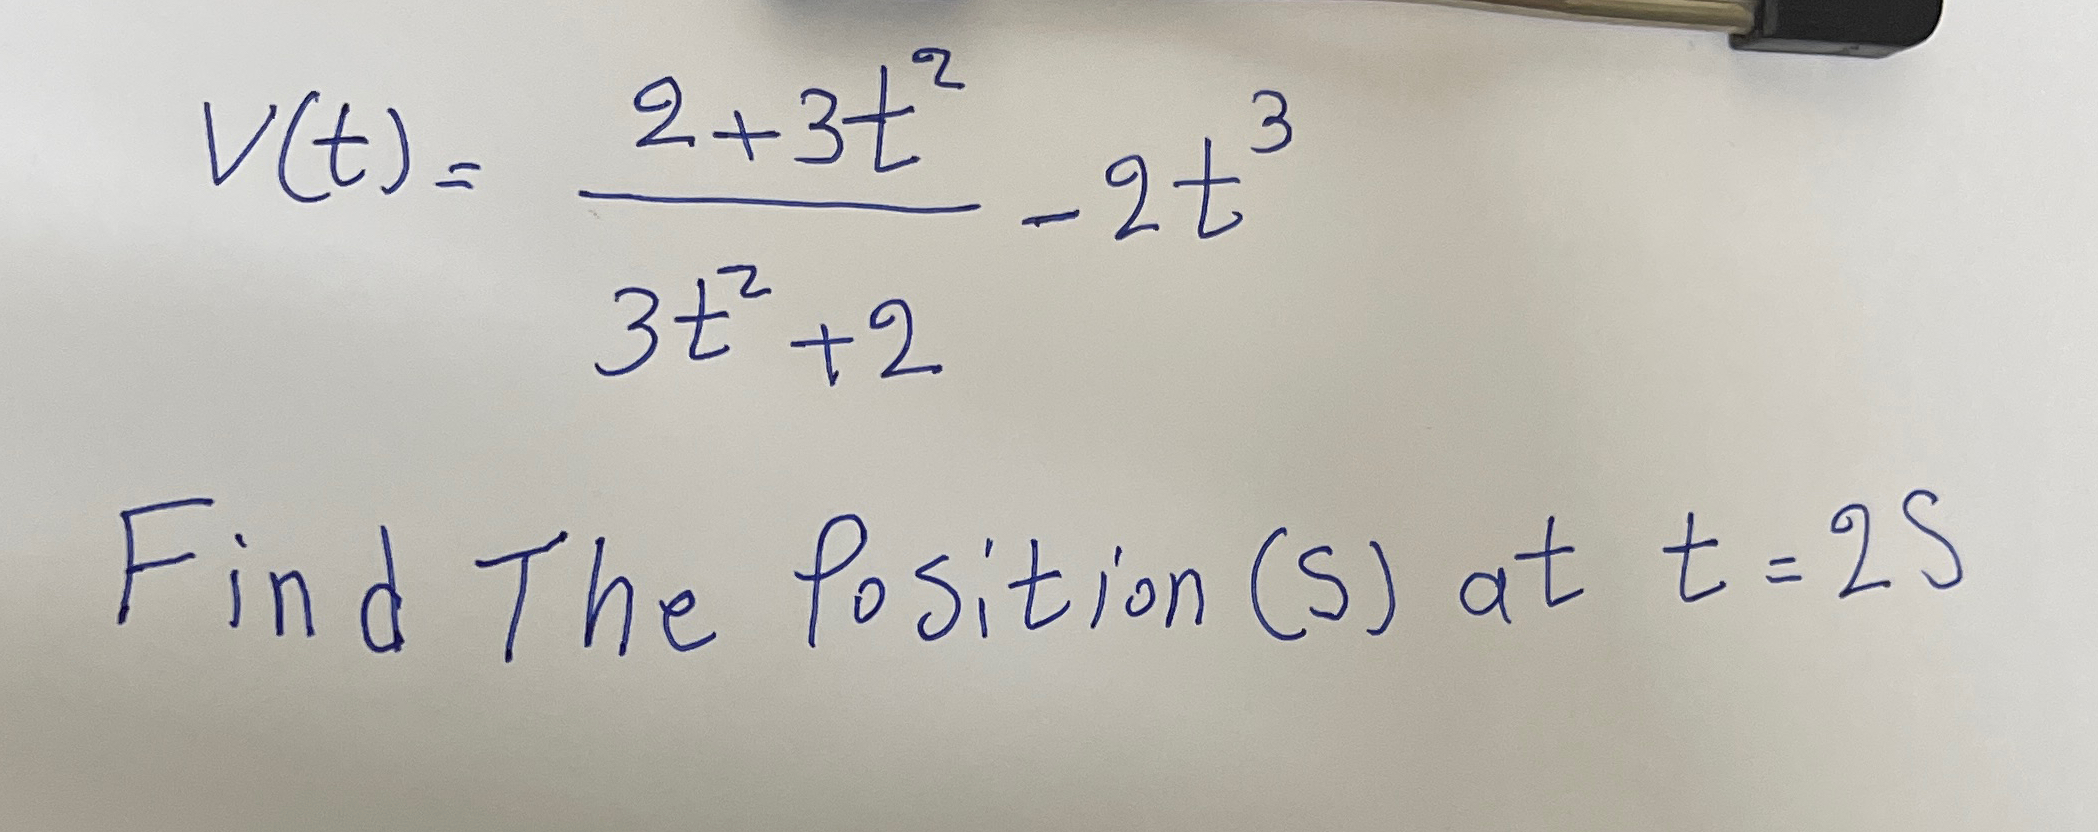 V(t) = (2+3t²)/(3t²+2) - 2t³
Find The Position (S) at t = 2S